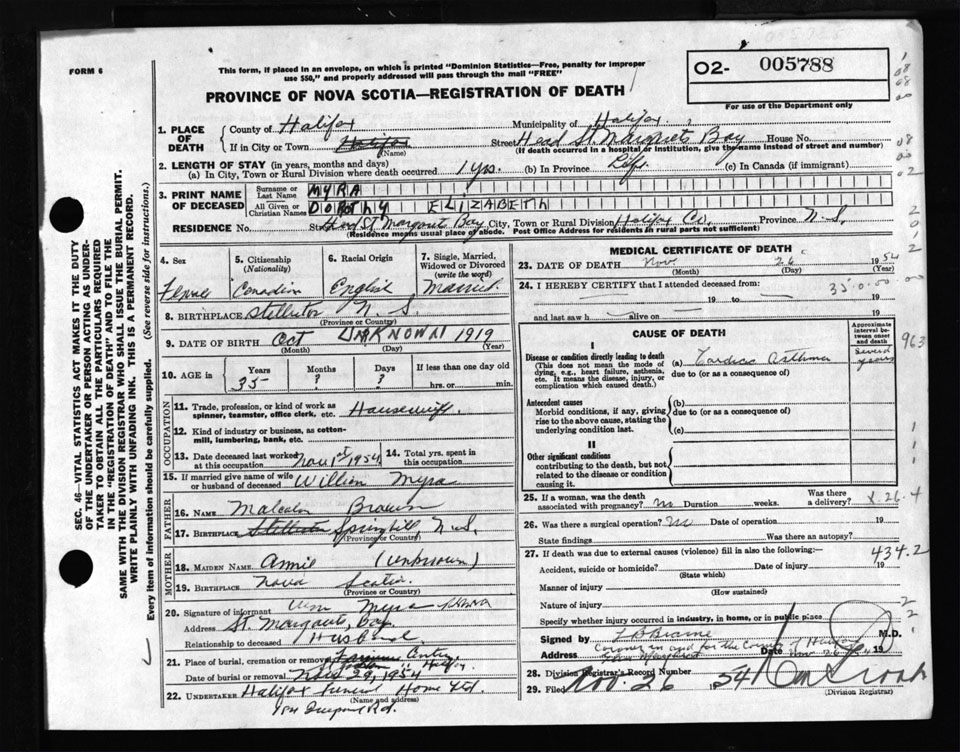 FORM 6
This form, if placed in an envelope, on which is printed "Dominion Statistics—Free, penalty for improper
use $50," and properly addressed will pass through the mail "FREE"
PROVINCE OF NOVA SCOTIA—REGISTRATION OF DEATH
O2- 005788
For use of the Department only
1. PLACE OF DEATH
County of Halifax Municipality of Halifax
If in City or Town Halifax Street Head St. Margrets Bay House No.
(Name) (If death occurred in a hospital or institution, give the name instead of street and number)
2. LENGTH OF STAY (in years, months and days)
(a) In City, Town or Rural Division where death occurred 1 yrs. (b) In Province Life (c) In Canada (if immigrant)
3. PRINT NAME OF DECEASED
Surname or Last Name MYRA
All Given or Christian Names DOROTHY ELIZABETH
RESIDENCE No. Street Head St Margrets Bay City, Town or Rural Division Halifax Co. Province N.S.
(Residence means usual place of abode. Post Office Address for residents in rural parts not sufficient)
4. Sex
Female
5. Citizenship
(Nationality)
Canadian
6. Racial Origin
English
7. Single, Married,
Widowed or Divorced
(write the word)
Married
8. BIRTHPLACE Stellerton N.S.
(Province or Country)
9. DATE OF BIRTH Oct UNKNOWN 1919
(Month) (Day) (Year)
10. AGE in
Years Months Days If less than one day
35 ? ? hrs. or min.
OCCUPATION
11. Trade, profession, or kind of work as
spinner, teamster, office clerk, etc. Housewife
12. Kind of industry or business, as cotton-
mill, lumbering, bank, etc.
13. Date deceased last worked
at this occupation Nov 1st 1954
14. Total yrs. spent in
this occupation
15. If married give name of wife
or husband of deceased William Myra
FATHER
16. NAME Malcolm Brown
17. BIRTHPLACE Stellerton Springhill N.S.
(Province or Country)
MOTHER
18. MAIDEN NAME Annie (unknown)
19. BIRTHPLACE Nova Scotia
(Province or Country)
20. Signature of informant Wm Myra
Address St. Margarets Bay
Relationship to deceased Husband
21. Place of burial, cremation or removal
Date of burial or removal Nov 29, 1954
22. UNDERTAKER Halifax Funeral Home Ltd.
(Name and address)
MEDICAL CERTIFICATE OF DEATH
23. DATE OF DEATH Nov. 26 1954
(Month) (Day) (Year)
24. I HEREBY CERTIFY that I attended deceased from:
19 to 19
and last saw h alive on 19
CAUSE OF DEATH
Approximate
interval be-
tween onset
and death
I
Disease or condition directly leading to death
(This does not mean the mode of
dying, e.g., heart failure, asthenia,
etc. It means the disease, injury, or
complication which caused death.)
(a) Cardiac Asthma
Several years
due to (or as a consequence of)
Antecedent causes
Morbid conditions, if any, giving
rise to the above cause, stating the
underlying condition last.
(b)
due to (or as a consequence of)
(c)
II
Other significant conditions
contributing to the death, but not
related to the disease or condition
causing it.
25. If a woman, was the death
associated with pregnancy? No Duration weeks. Was there
a delivery?
26. Was there a surgical operation? No Date of operation 19
State findings Was there an autopsy?
27. If death was due to external causes (violence) fill in also the following:—
Accident, suicide or homicide? Date of injury 19
(State which)
Manner of injury
(How sustained)
Nature of injury
Specify whether injury occurred in industry, in home, or in public place
Signed by M.D.
Coroner in and for the County of Halifax
Address Nov 26 1954
28. Division Registrar's Record Number
29. Filed Nov. 26 1954
(Division Registrar)
963
434.2
SEC. 46—VITAL STATISTICS ACT MAKES IT THE DUTY
OF THE UNDERTAKER OR PERSON ACTING AS UNDER-
TAKER TO OBTAIN ALL THE PARTICULARS REQUIRED
IN THE "REGISTRATION OF DEATH" AND TO FILE THE
SAME WITH THE DIVISION REGISTRAR WHO SHALL ISSUE THE BURIAL PERMIT.
WRITE PLAINLY WITH UNFADING INK. THIS IS A PERMANENT RECORD.
Every item of information should be carefully supplied. (See reverse side for instructions.)